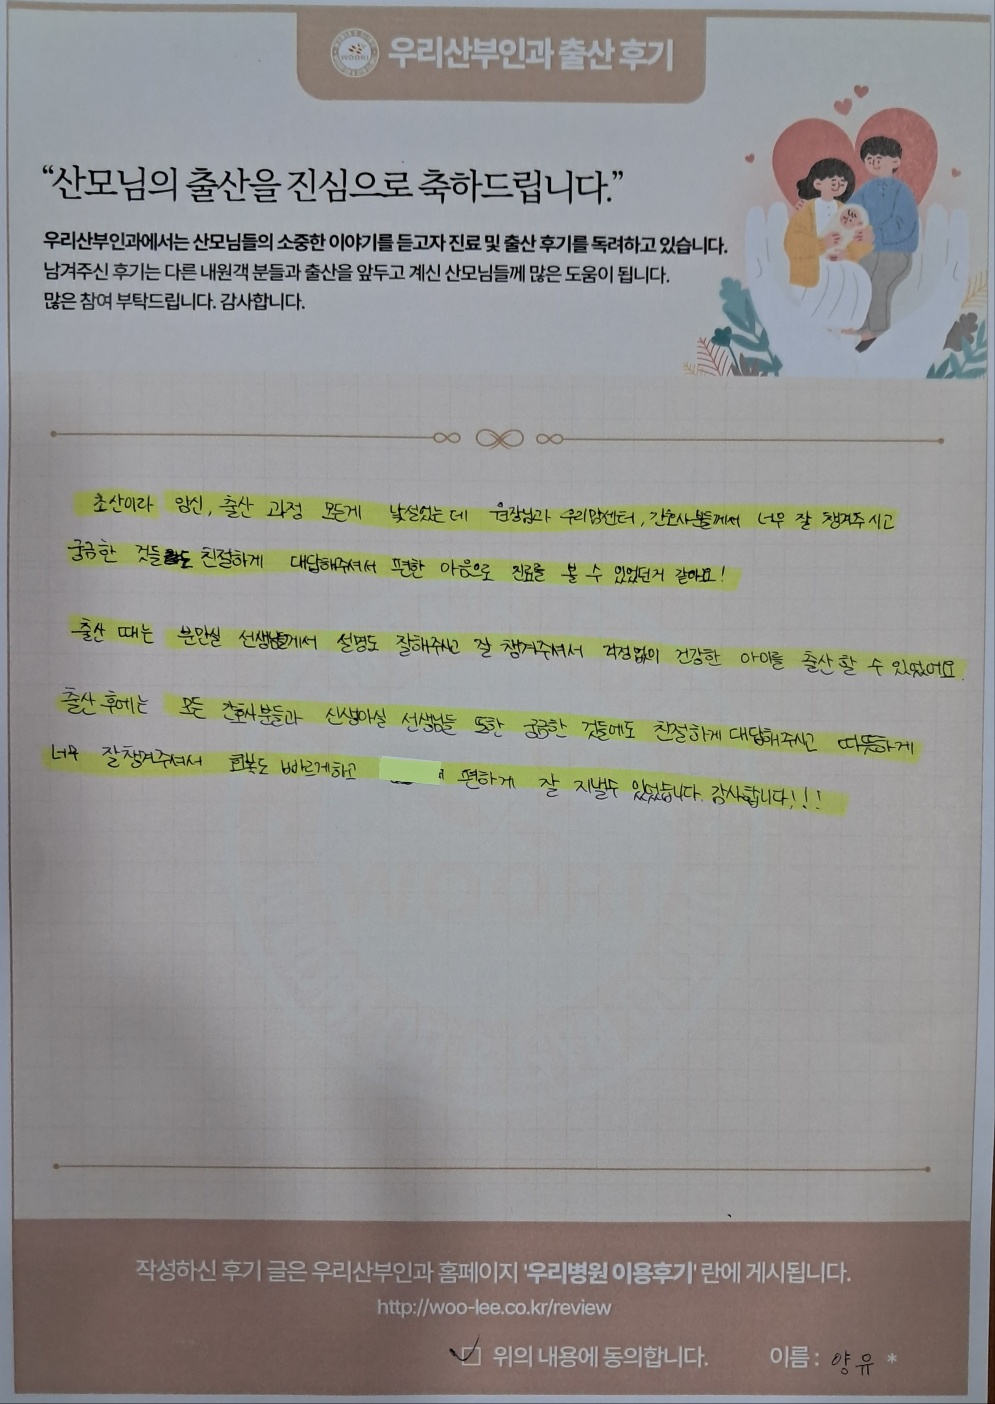 WOORI
우리산부인과 출산 후기
“산모님의 출산을 진심으로 축하드립니다.”
우리산부인과에서는 산모님들의 소중한 이야기를 듣고자 진료 및 출산 후기를 독려하고 있습니다.
남겨주신 후기는 다른 내원객 분들과 출산을 앞두고 계신 산모님들께 많은 도움이 됩니다.
많은 참여 부탁드립니다. 감사합니다.
초산이라 임신, 출산 과정 모든게 낯설었는데 원장님과 우리맘센터, 간호사분들께서 너무 잘 챙겨주시고
궁금한 것들도 친절하게 대답해주셔서 편한 마음으로 진료를 볼 수 있었던거 같아요!
출산 때는 분만실 선생님들께서 설명도 잘해주시고 잘 챙겨주셔서 걱정없이 건강한 아이를 출산할 수 있었어요.
출산 후에는 모든 간호사분들과 신생아실 선생님들 또한 궁금한 것들에도 친절하게 대답해주시고 따뜻하게
너무 잘챙겨주셔서 회복도 빠르게하고 편하게 잘 지낼수 있었습니다. 감사합니다!!!
작성하신 후기 글은 우리산부인과 홈페이지 '우리병원 이용후기' 란에 게시됩니다.
http://woo-lee.co.kr/review
위의 내용에 동의합니다. 이름 : 양유 *